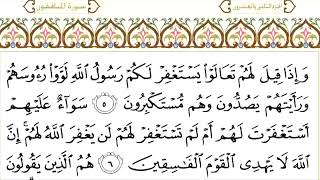 سورة المنافقون الجزء الثامن والعشرون
وَإِذَا قِيلَ لَهُمْ تَعَالَوْا۟ يَسْتَغْفِرْ لَكُمْ رَسُولُ ٱللَّهِ لَوَّوْا۟ رُءُوسَهُمْ
وَرَأَيْتَهُمْ يَصُدُّونَ وَهُم مُّسْتَكْبِرُونَ ٥ سَوَآءٌ عَلَيْهِمْ
أَسْتَغْفَرْتَ لَهُمْ أَمْ لَمْ تَسْتَغْفِرْ لَهُمْ لَن يَغْفِرَ ٱللَّهُ لَهُمْ إِنَّ
ٱللَّهَ لَا يَهْدِى ٱلْقَوْمَ ٱلْفَـٰسِقِينَ ٦ هُمُ ٱلَّذِينَ يَقُولُونَ